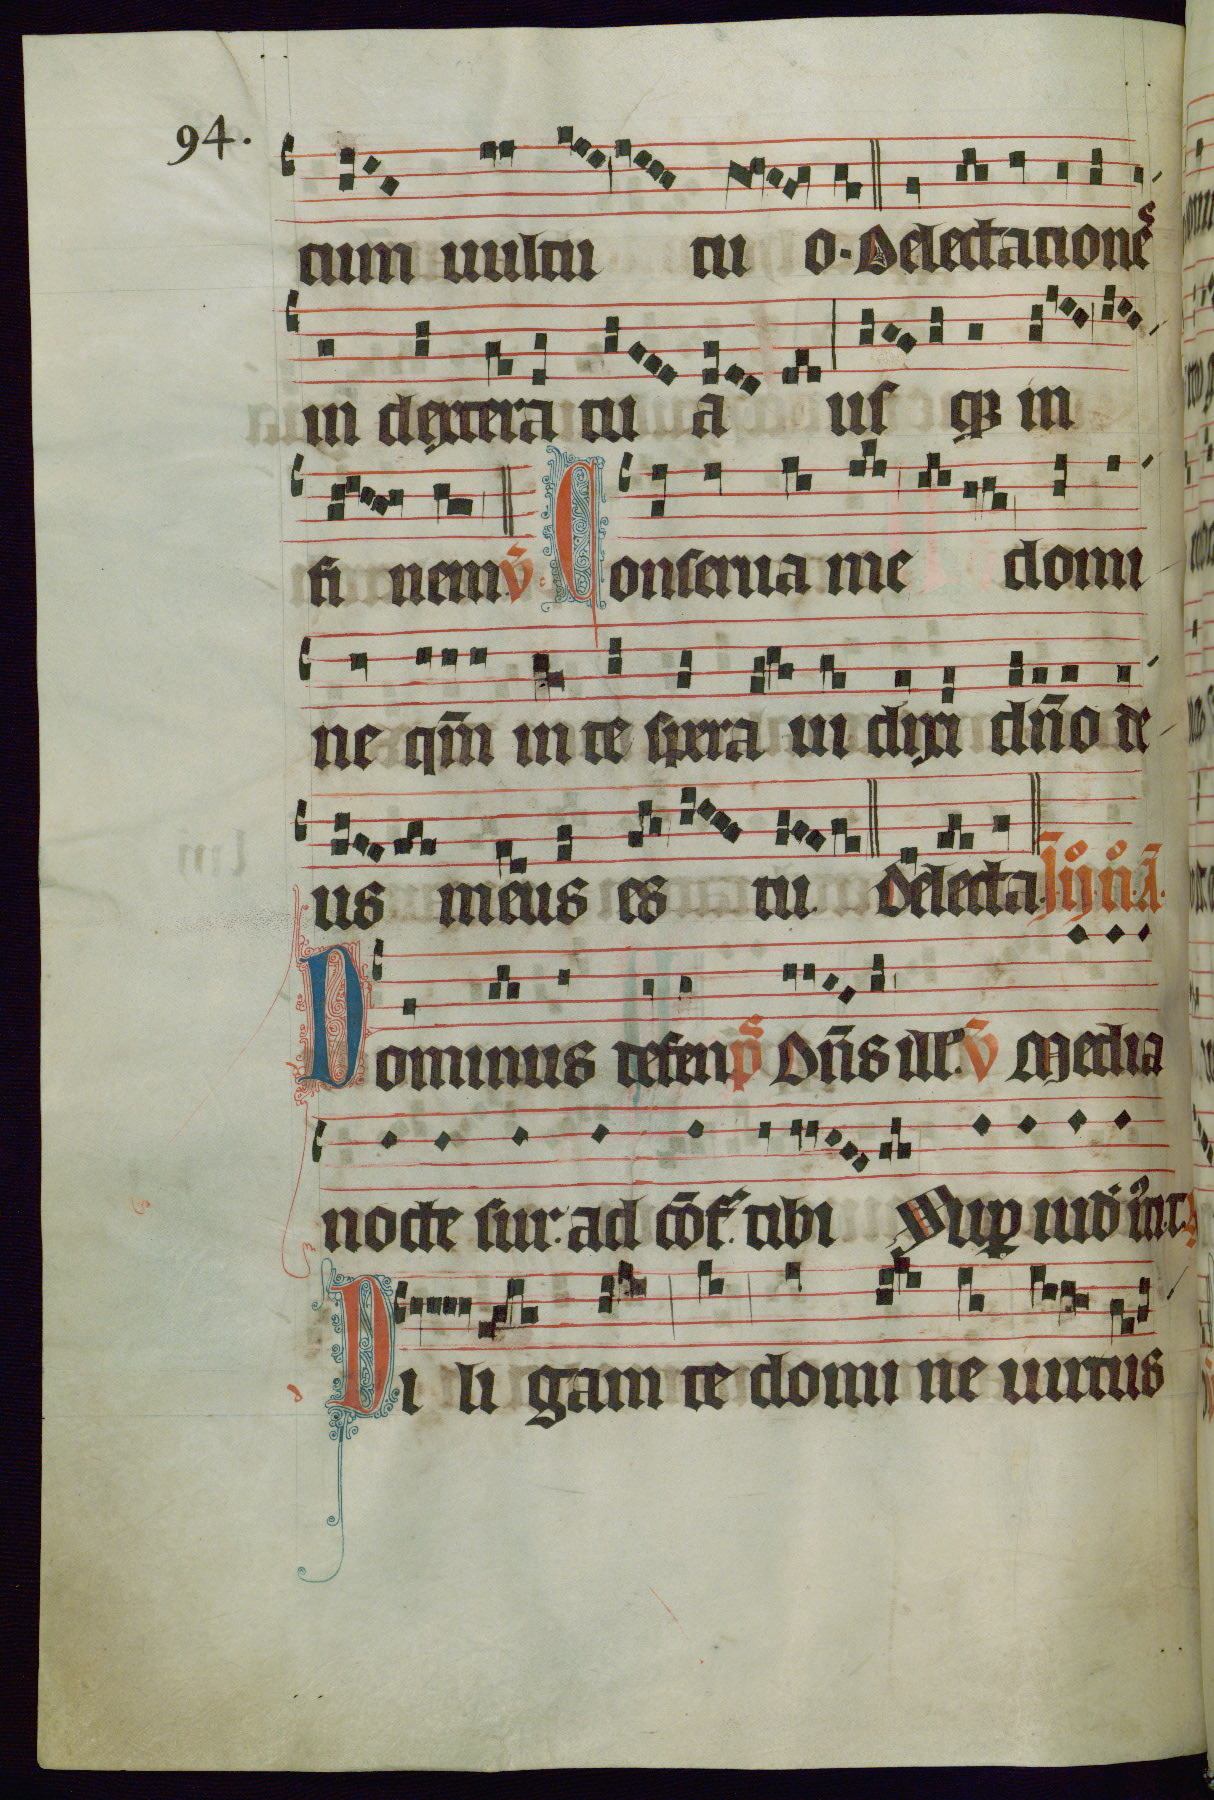 94.
cum uultu tu o. Delectationes
in dextera tu a us qȝ in
fi nem v̄. Conserua me domi
ne qm̄ in te spera ui dixi dn̄o de
us meus es tu Delecta.
Dominus defen p̄s Dn̄s ill'. v̄ Media
nocte sur. ad cōf. tibi Sup
Di li gam te domi ne uirtus